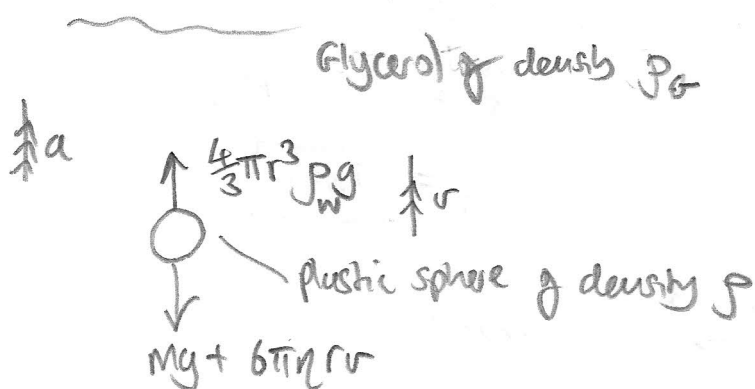 Glycerol of density ρ_G
a
4/3 πr³ρ_w g
v
plastic sphere of density ρ
Mg + 6πηrv